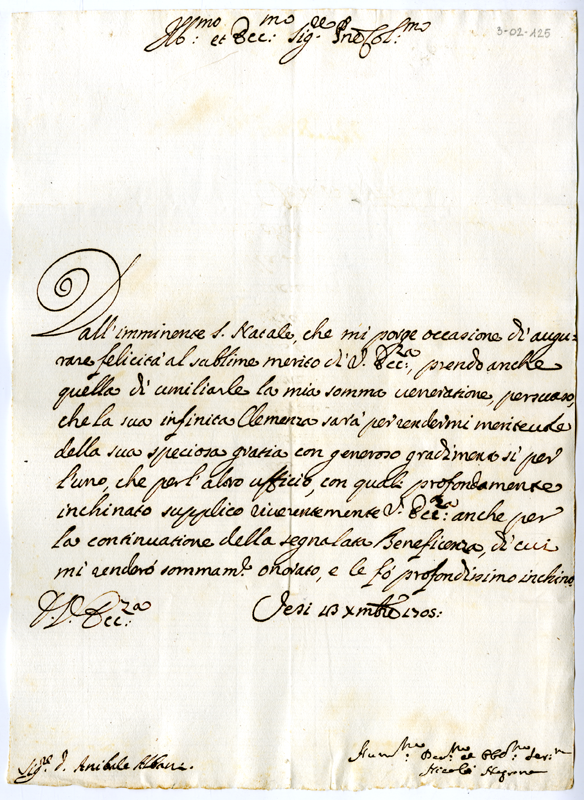 3-02-125
Ill:mo et Ecc:mo Sig:re Prõe Col:mo
Dall'imminente S. Natale, che mi porge occasione di augu=
rare felicità al sublime merito di V. Ecc:za, prendo anche
quella di umiliarle la mia somma veneratione, persuaso,
che la sua infinita Clemenza sarà per rendermi meriteuole
della sua speciosa gratia con generoso gradimento sì per
l'uno, che per l'altro ufficio, con quali profondamente
inchinato supplico riverentemente V. Ecc:za anche per
la continuatione della segnalata Beneficenza, di cui
mi renderò sommam:te onorato, e le fò profondissimo inchino
D. V. Ecc:za Jesi 13 Xmbre 1705:
Sig:re D. Anibale Albani.
Hum:mo Dev:mo et Obb:mo Ser:re
Nicolò Negrone